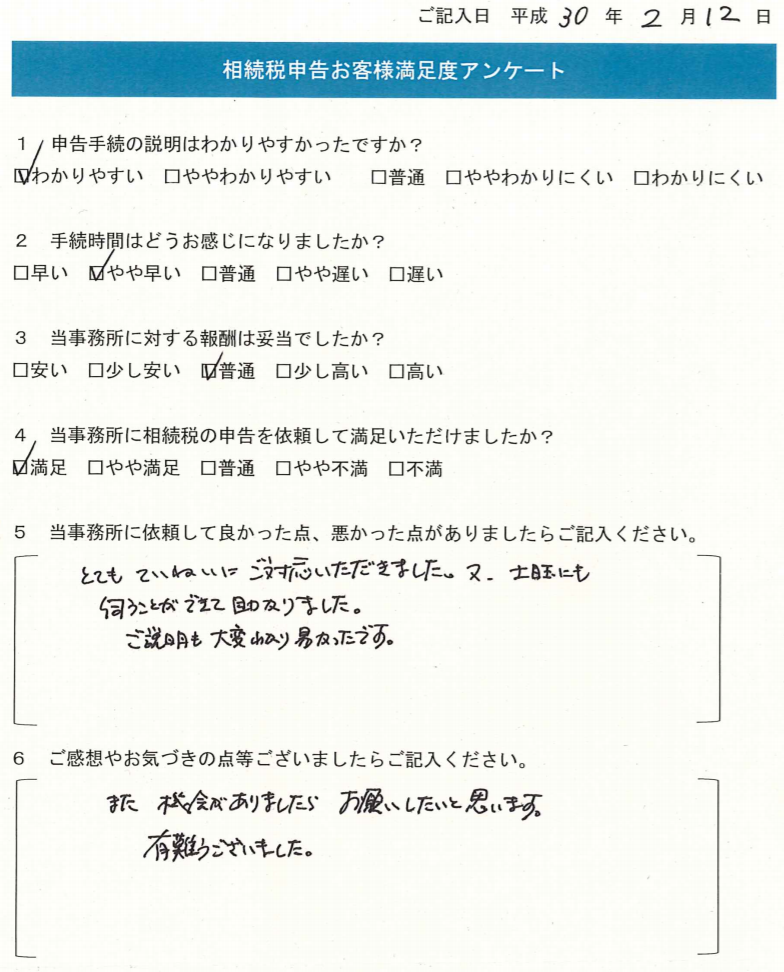 ご記入日 平成 30 年 2 月 12 日
相続税申告お客様満足度アンケート
1 申告手続の説明はわかりやすかったですか？
☑わかりやすい □ややわかりやすい □普通 □ややわかりにくい □わかりにくい
2 手続時間はどうお感じになりましたか？
□早い ☑やや早い □普通 □やや遅い □遅い
3 当事務所に対する報酬は妥当でしたか？
□安い □少し安い ☑普通 □少し高い □高い
4 当事務所に相続税の申告を依頼して満足いただけましたか？
☑満足 □やや満足 □普通 □やや不満 □不満
5 当事務所に依頼して良かった点、悪かった点がありましたらご記入ください。
とても ていねいに ご対応いただきました。又、土日にも
伺うことができて 助かりました。
ご説明も 大変わかり易かったです。
6 ご感想やお気づきの点等ございましたらご記入ください。
また 機会がありましたら お願いしたいと思います。
有難うございました。